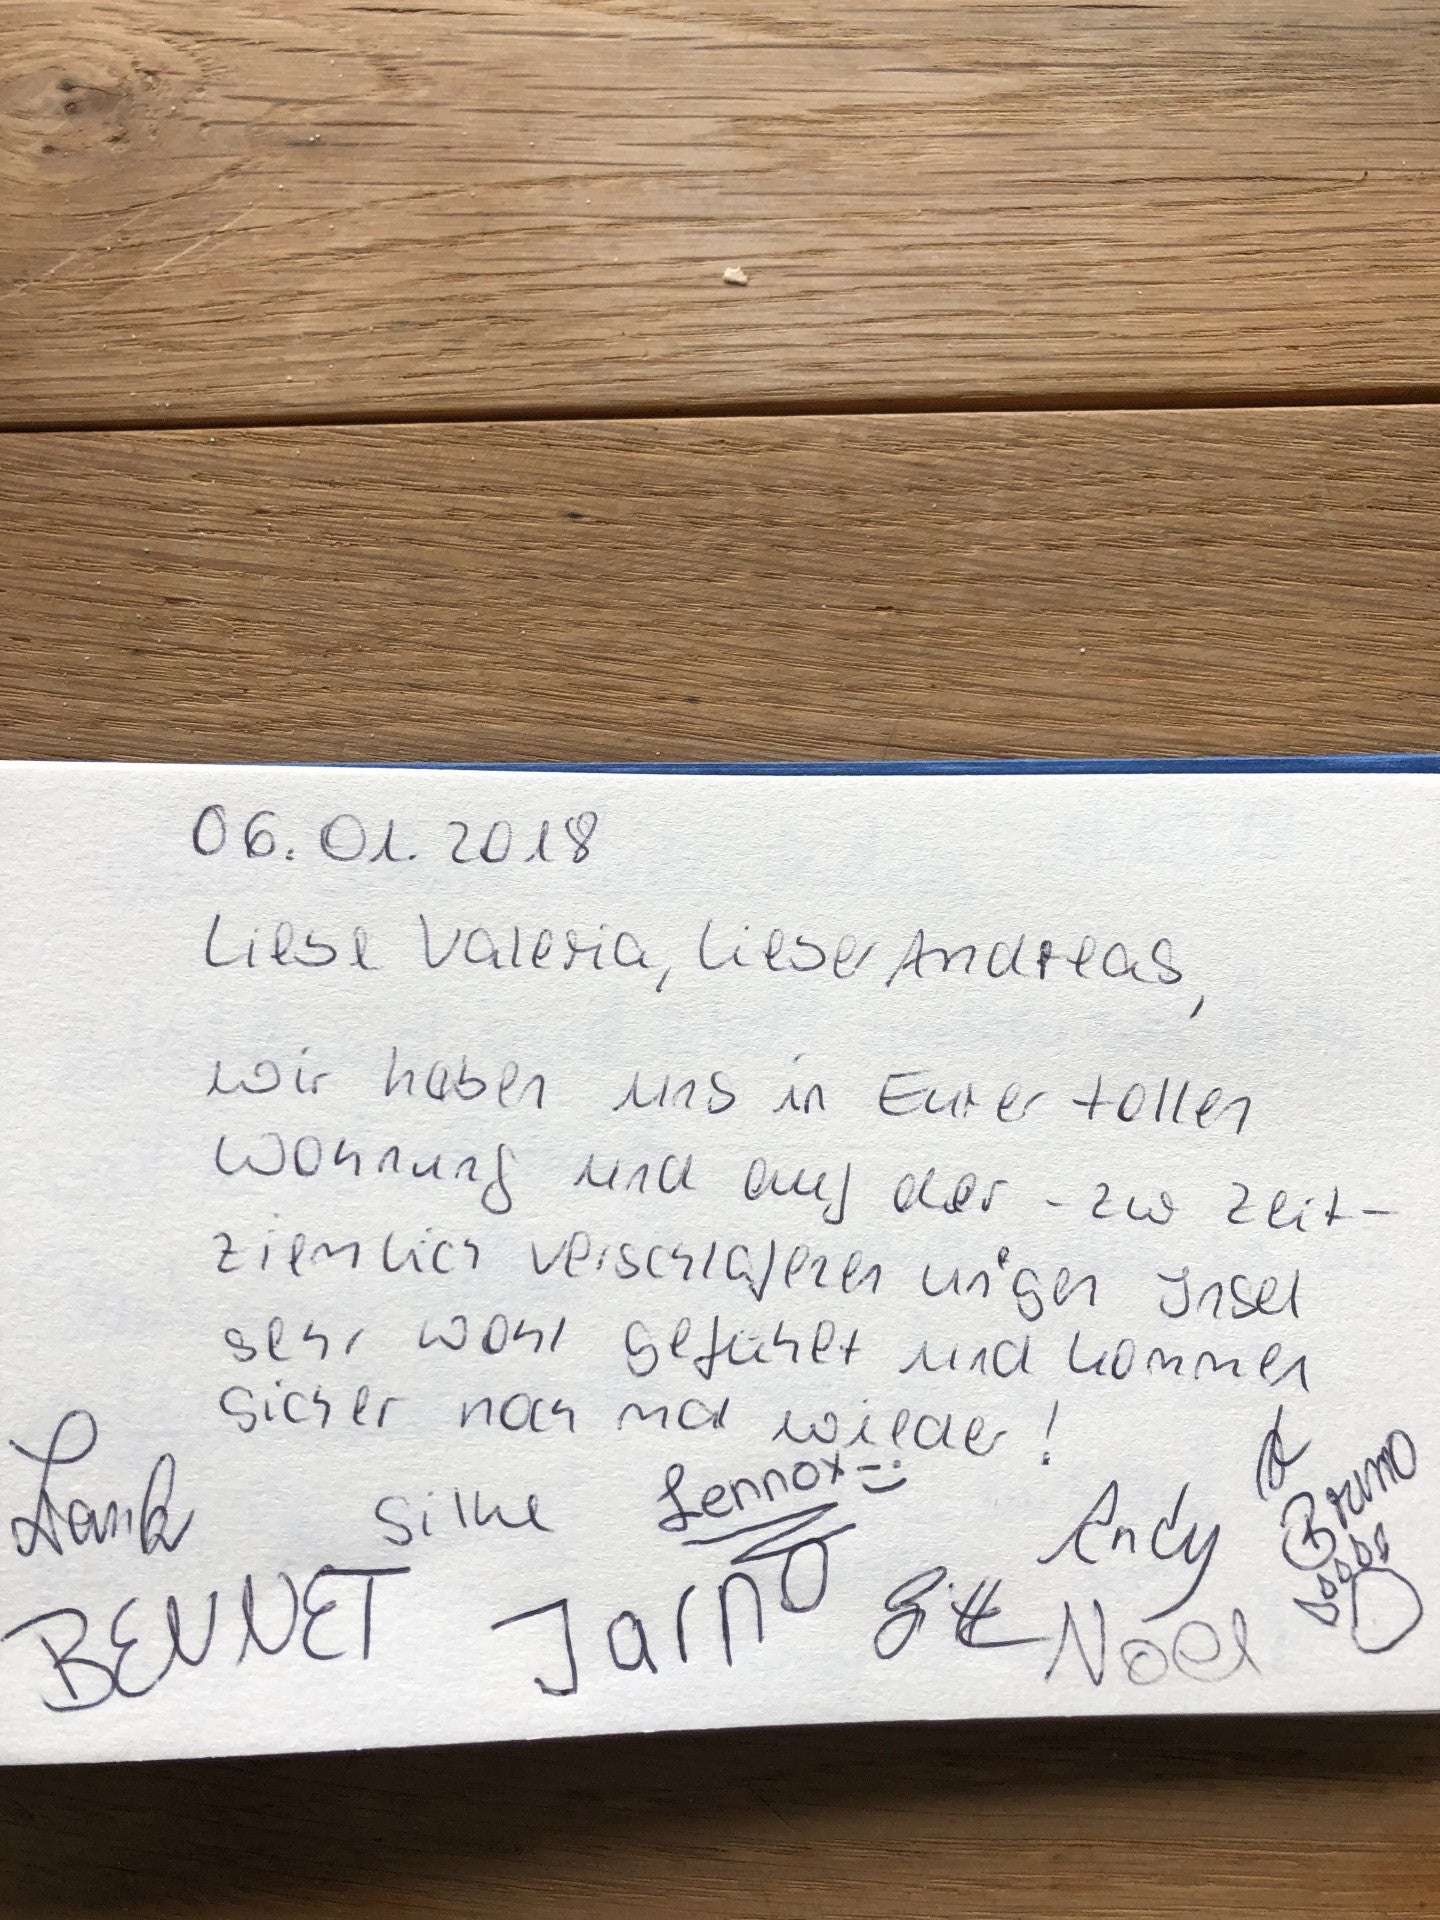 06.01.2018
Liebe Valeria, lieber Andreas,
wir haben uns in Eurer tollen
Wohnung und auf der - zur Zeit -
ziemlich verschlafenen urigen Insel
sehr wohl gefühlt und kommen
sicher noch mal wieder!
Silke Lennox =) Andy & Bruno
BENNET Jarno Gitte Noel